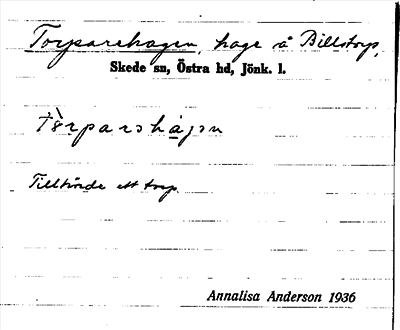 Torparehagen, hage å Billstorp,
Skede sn, Östra hd, Jönk. l.
Tillhörde ett torp.
Annalisa Anderson 1936